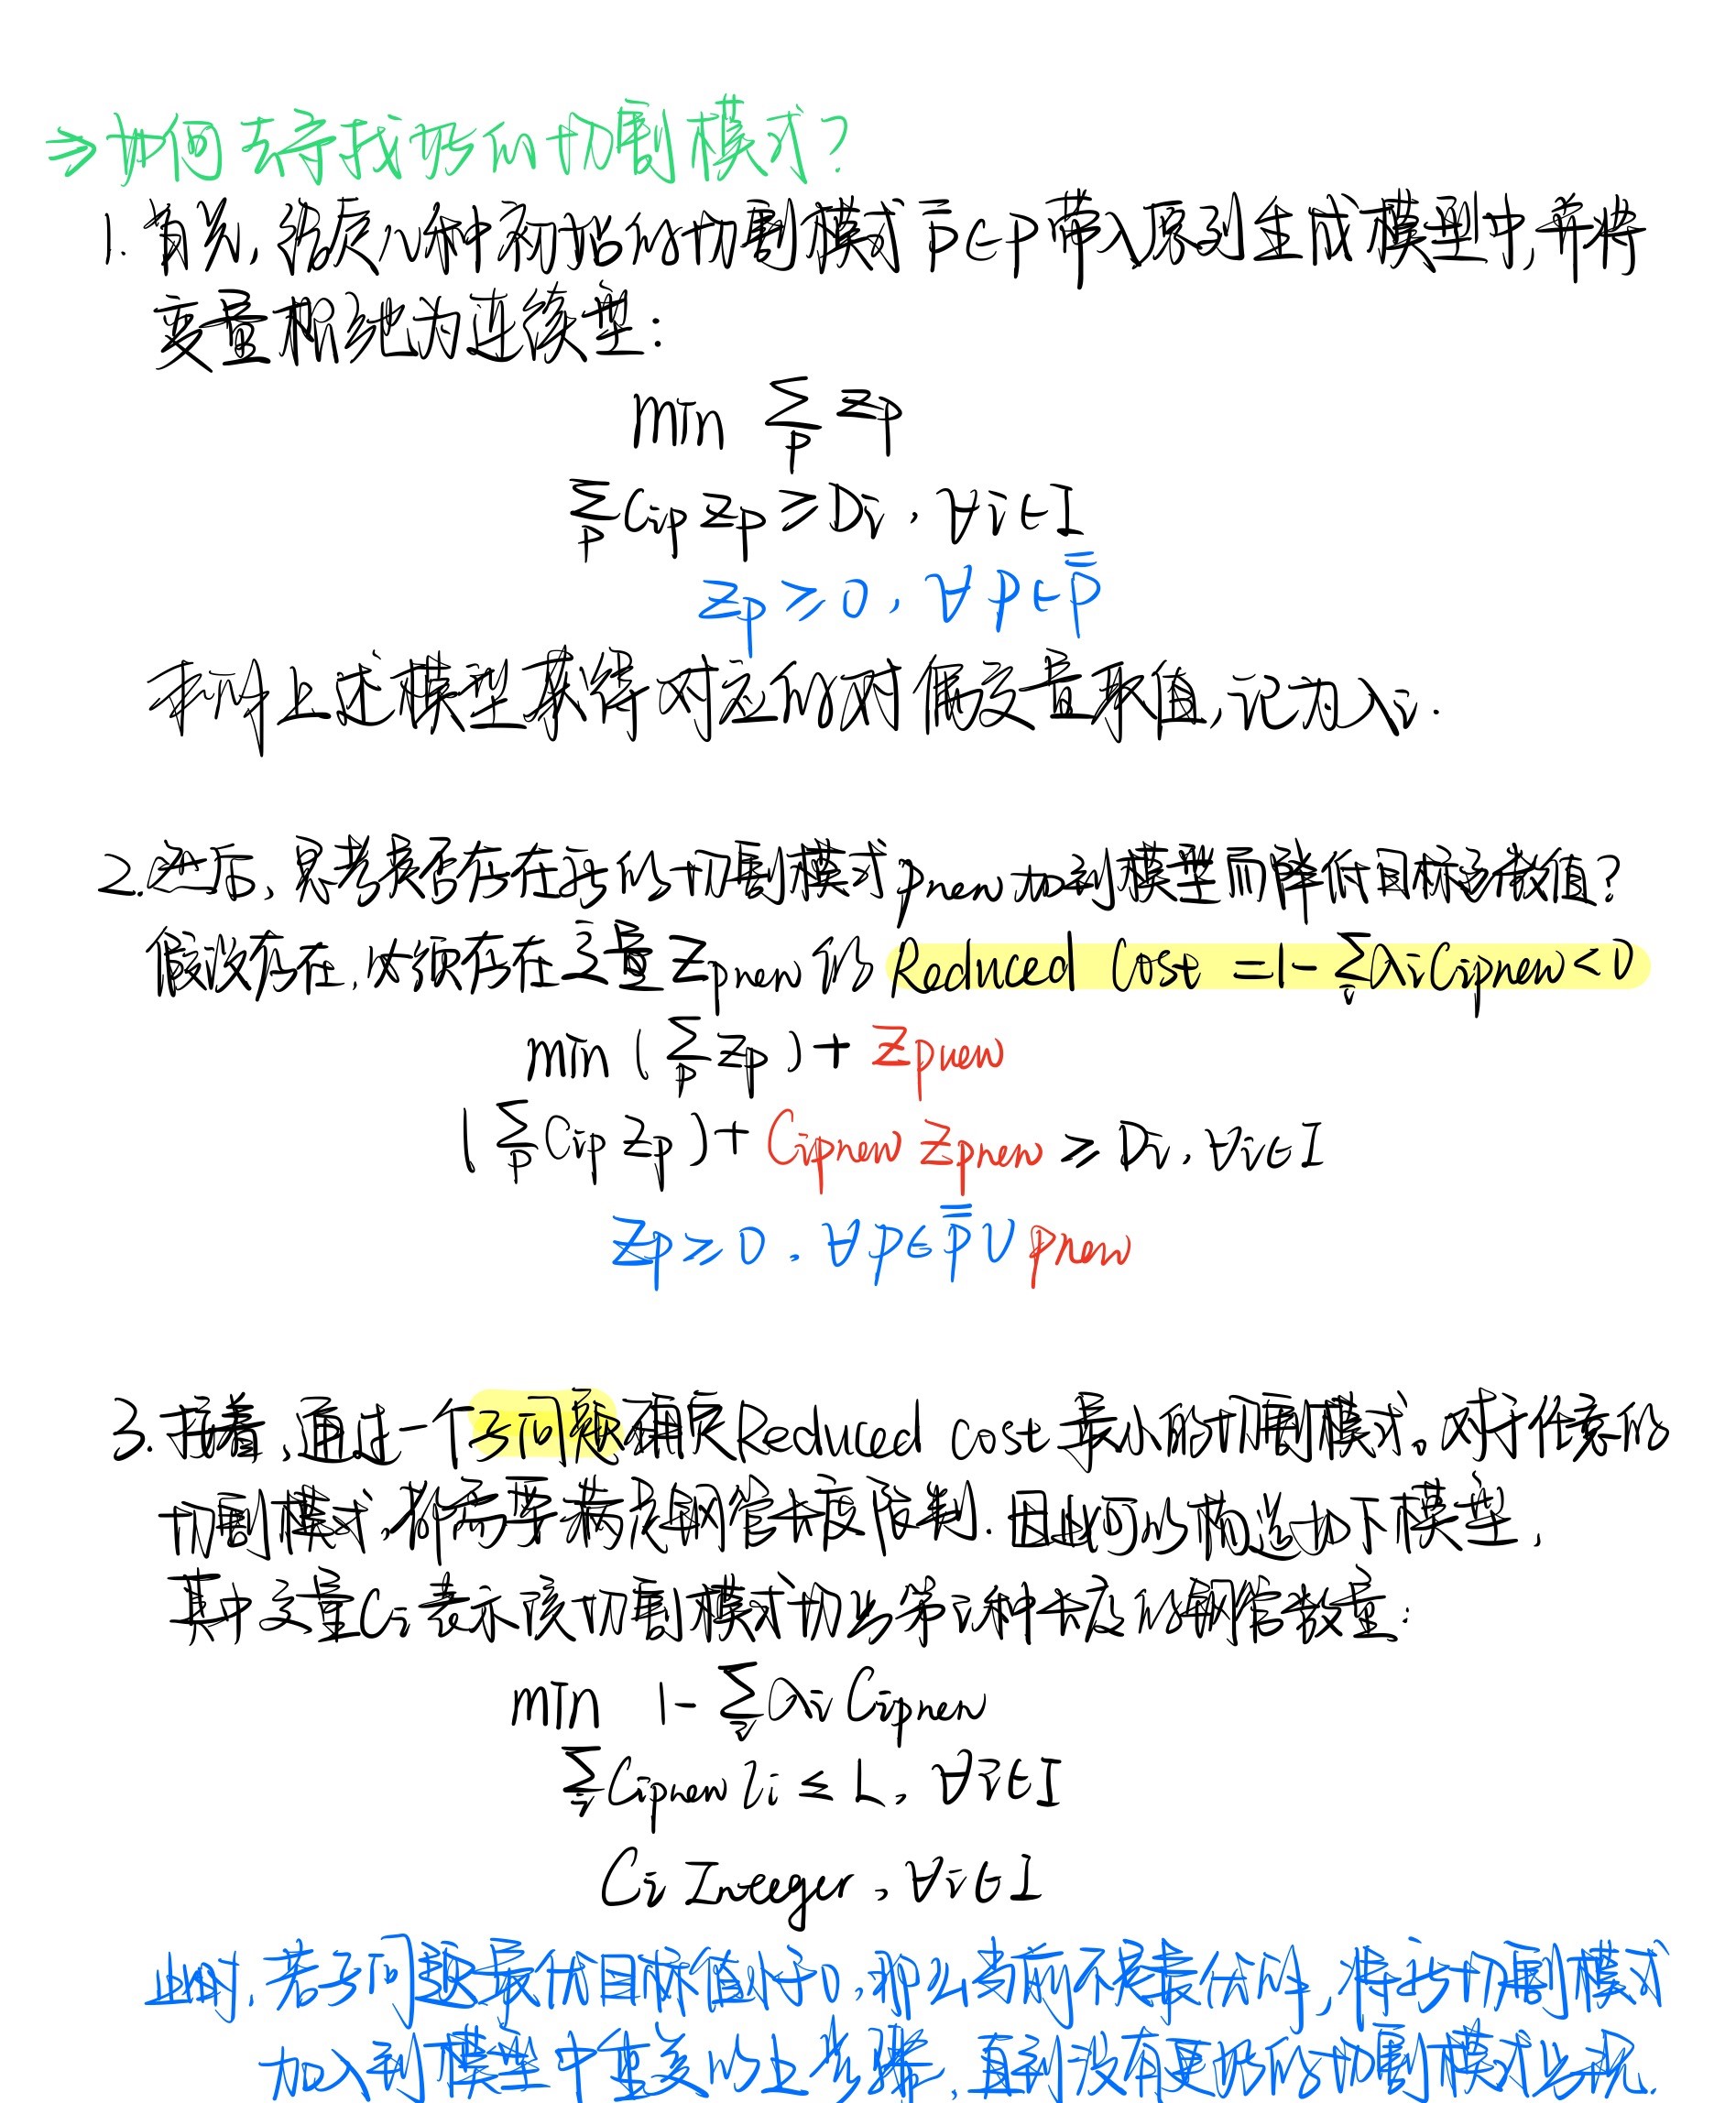 ⇒如何去寻找新的切割模式?
1. 首先,给定几种初始的切割模式 p̄∈P带入原列生成模型中,并将
变量松弛为连续型:
min ∑_p z_p
∑_p C_ip z_p ≥ D_i, ∀i∈I
z_p ≥ 0, ∀p∈P̿
求解上述模型获得对应的对偶变量取值,记为λ_i.
2.然后,思考是否存在新的切割模式p_new加到模型而降低目标函数值?
假设存在,必须存在变量Z_pnew的Reduced Cost =1-∑_i λ_i C_ipnew<0
min (∑_p z_p)+ Z_pnew
(∑_p C_ip z_p)+ C_ipnew Z_pnew ≥ D_i, ∀i∈I
Z_p≥0, ∀p∈P̿∪p_new
3. 接着,通过一个子问题确定Reduced cost最小的切割模式。对于任意的
切割模式,都需要满足钢管长度限制.因此可以构造如下模型,
其中变量C_i表示该切割模式切出第i种长度的钢管数量:
min 1-∑_i λ_i C_ipnew
∑_i C_ipnew l_i ≤ L, ∀i∈I
C_i Integer, ∀i∈I
此时,若子问题最优目标值小于0,那么当前不是最优解,将新切割模式
加入到模型中重复以上步骤,直到没有更好的切割模式出现.